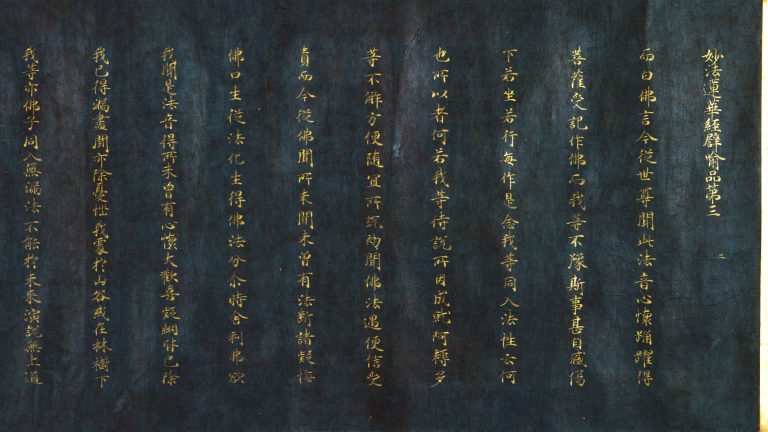 妙法蓮華經譬喻品第三
而白佛言今從世尊聞此法音心懷踊躍得
菩薩受記作佛而我等不豫斯事甚自感傷
下若坐若行每作是念我等同入法性云何
也所以者何若我等待說所因成就阿耨多
等不解方便隨宜所說初聞佛法遇便信受
責而今從佛聞所未聞未曾有法斷諸疑悔
佛口生從法化生得佛法分尒時舍利弗欲
我聞是法音得所未曾有心懷大歡喜疑網皆已除
我已得漏盡聞亦除憂惱我處於山谷或在林樹下
我等亦佛子同入無漏法不能於未來演說無上道